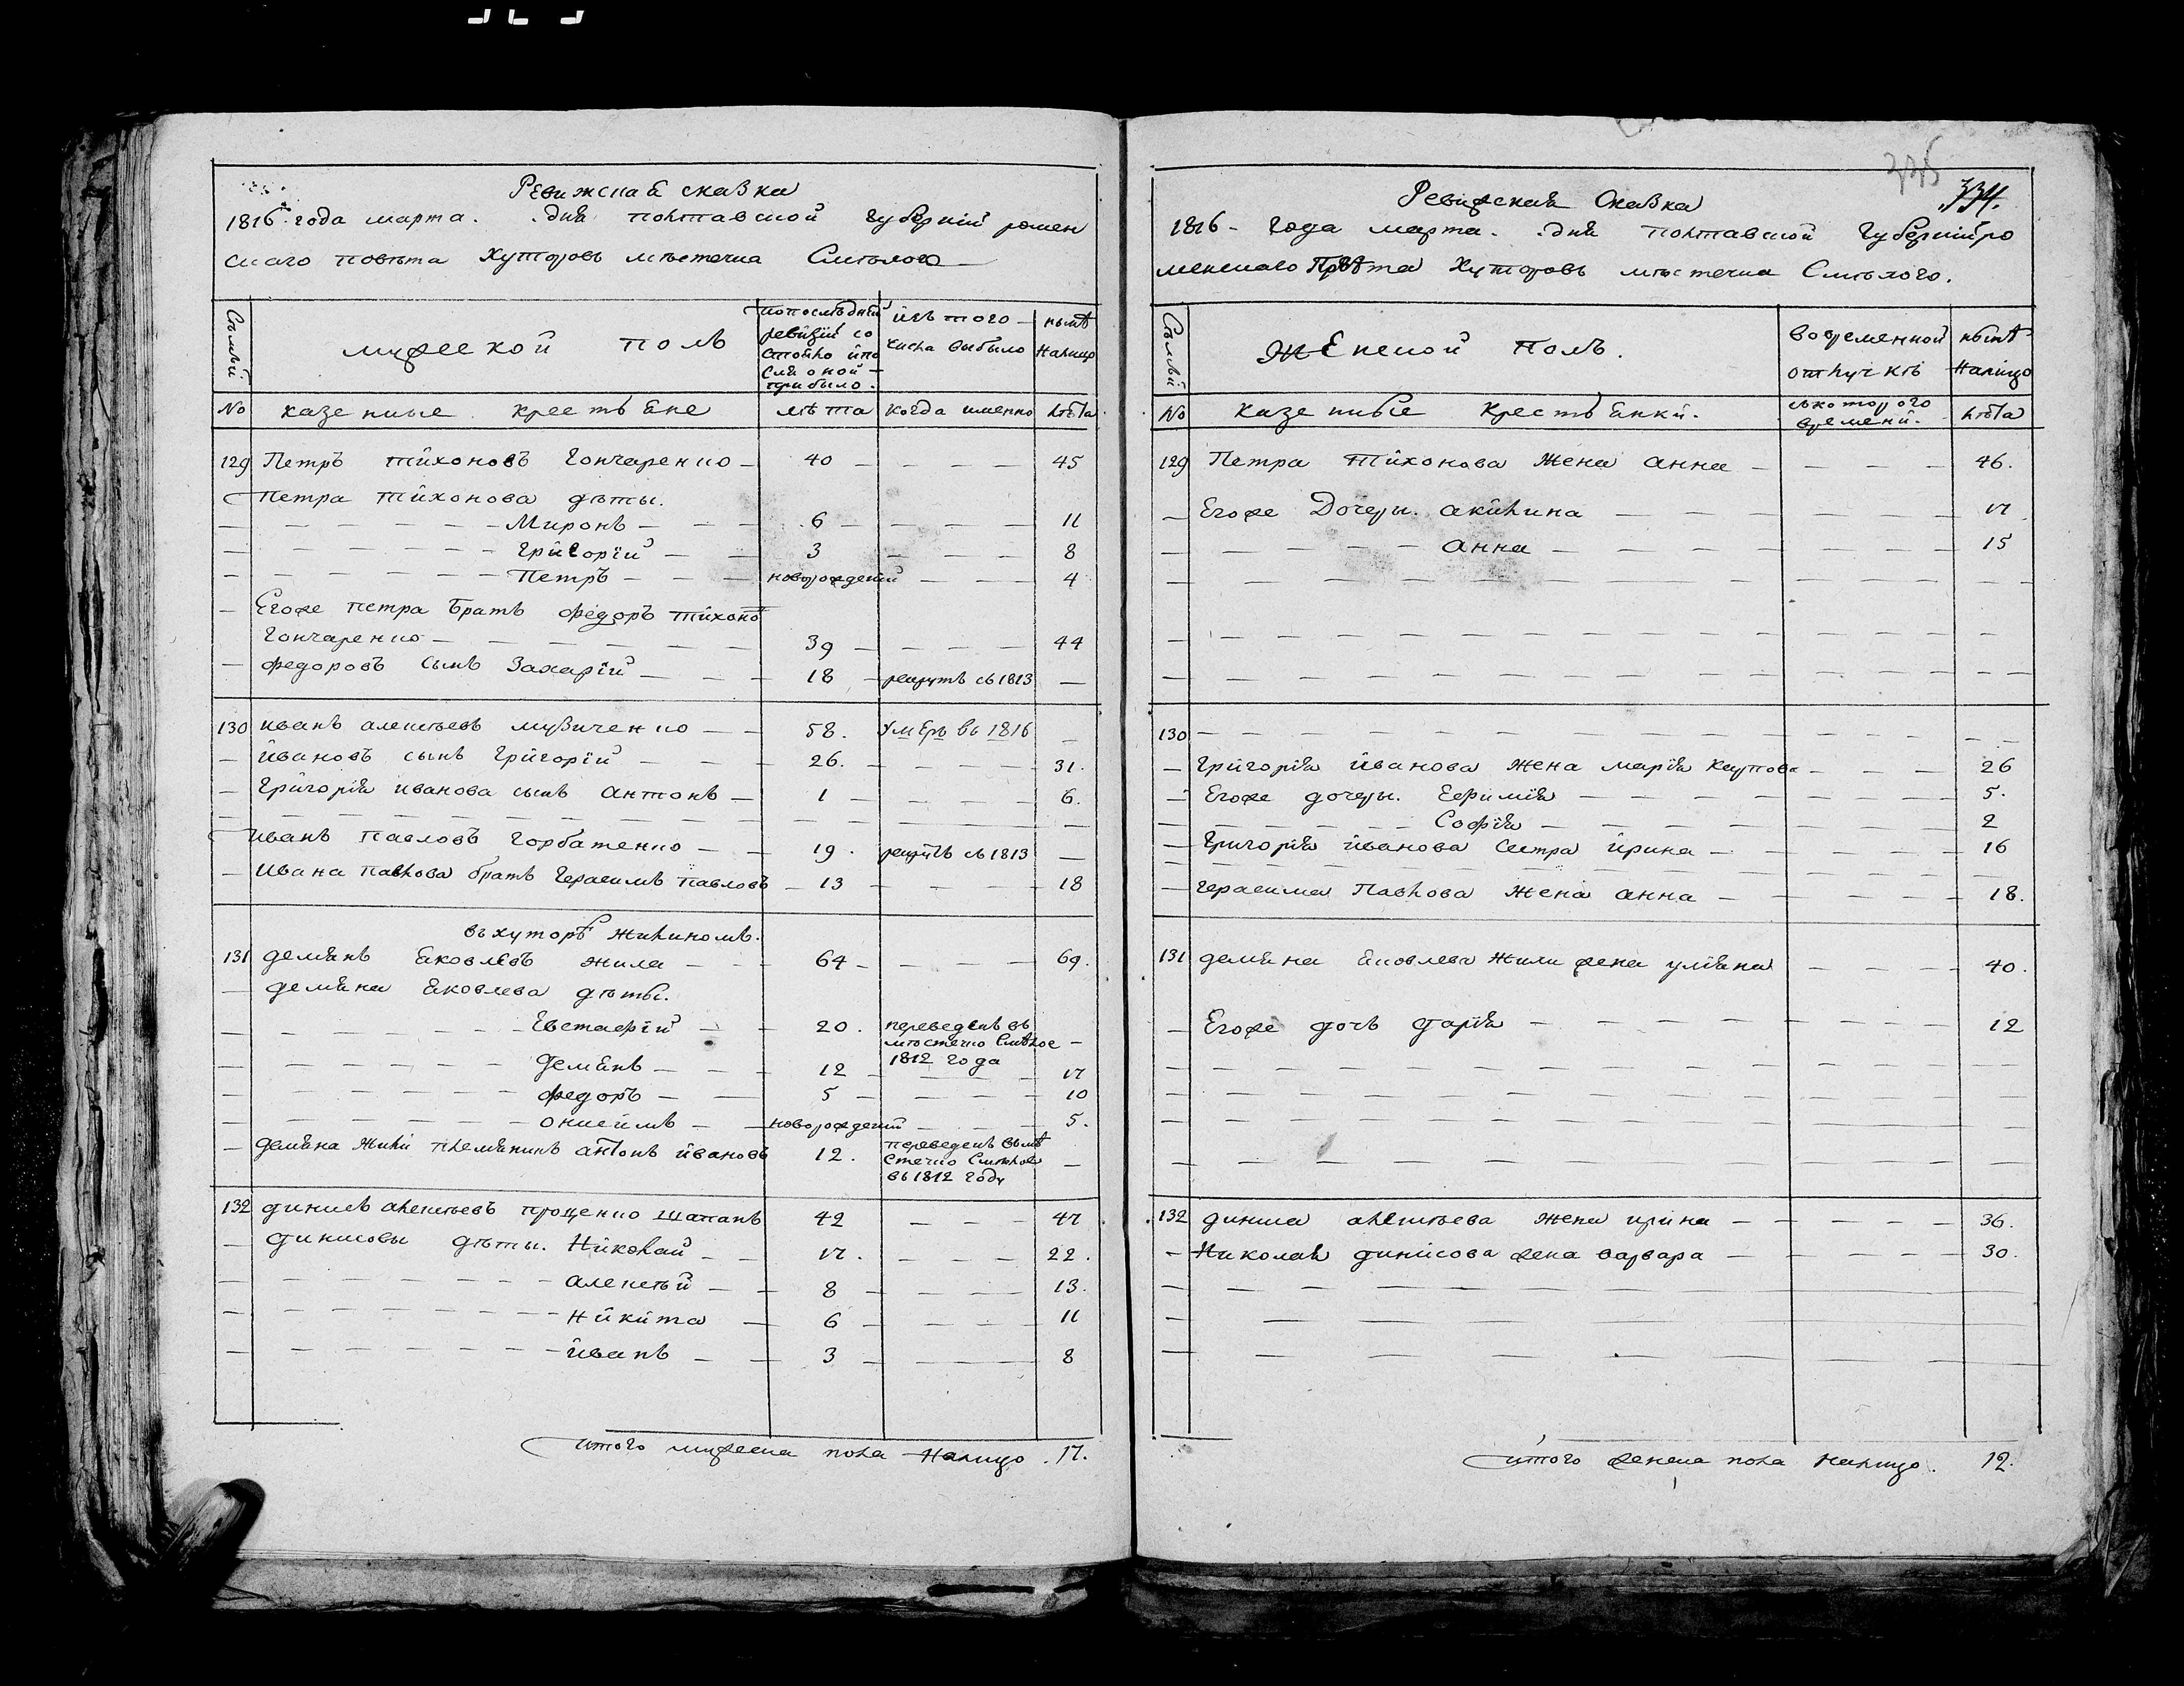 Ревижская сказка
1816 года марта. дня полтавской губерніи ромен
скаго повѣта хуторовъ мѣстечка Смѣлого
Семьи
мужеской полъ
по последней ревизіи состояло и после оной прибыло.
изъ того числа выбыло
нынѣ налицо
№ казенные крестьяне лѣта когда именно лѣта
129 Петръ тихоновъ Гончаренко — 40 — — — 45
Петра тихонова дѣты.
— Миронъ — 6 — — 11
— Григорій — 3 — — 8
— Петръ — новорожденій — — 4
— Егоже петра братъ федоръ тихоно
Гончаренко — 39 — — 44
— федоровъ сынъ Захарій — 18 — рекрутъ въ 1813 —
130 иванъ алексѣевъ музиченко — 58. умеръ въ 1816 —
— ивановъ сынъ григорій — 26. — — 31.
— Григорія иванова сынъ антонъ — 1 — — 6.
иванъ павловъ горбатенко — 19. рекрутъ въ 1813 —
— ивана павлова братъ герасимъ павловъ — 13 — — 18
въ хуторѣ жилиномъ.
131 демянъ яковлевъ жила — 64 — — 69.
— демяна яковлева дѣты.
— Евстафій — 20. переведенъ въ
мѣстечко Смѣлое —
1812 года
— демянъ — 12 — — 17
— федоръ — 5 — — 10
— онисимъ — новорожденій — 5.
— демяна жили племянникъ антонъ ивановъ 12. переведенъ вмѣ
стечко Смѣлое —
въ 1812 году
132 динисъ алексѣевъ проценко шапанъ 42 — — 47
— динисовы дѣты. николай — 17. — — 22.
— алексѣй — 8 — — 13.
— никита — 6 — — 11
— иванъ — 3 — — 8
итого мужеска пола налицо. 17.
335
334.
Ревижская Сказка
1816 - года марта. дня полтавской губерніи ро
менскаго Повѣта хуторовъ мѣстечка Смѣлого.
Семьи
Женской полъ.
во временной отлучкѣ
нынѣ налицо
№ казенные крестьянки. съ которого времени. лѣта
129 Петра тихонова жена анна — — 46.
— Егоже Дочери. акилина — — 17
— анна — — 15
130 — — —
— григорія иванова жена марія карпова — — 26
— Егоже дочери. Ефимія — — 5.
— Софія — — 2
— григорія иванова сестра ирина — — 16
— герасима павлова жена анна — — 18.
131 демяна яковлева жили жена уляна — — 40.
— Егоже дочь дарія — — 12
132 диниса алексѣева жена ирина — — 36.
— николая динисова жена варвара — — 30.
итого женска пола налицо. 12.